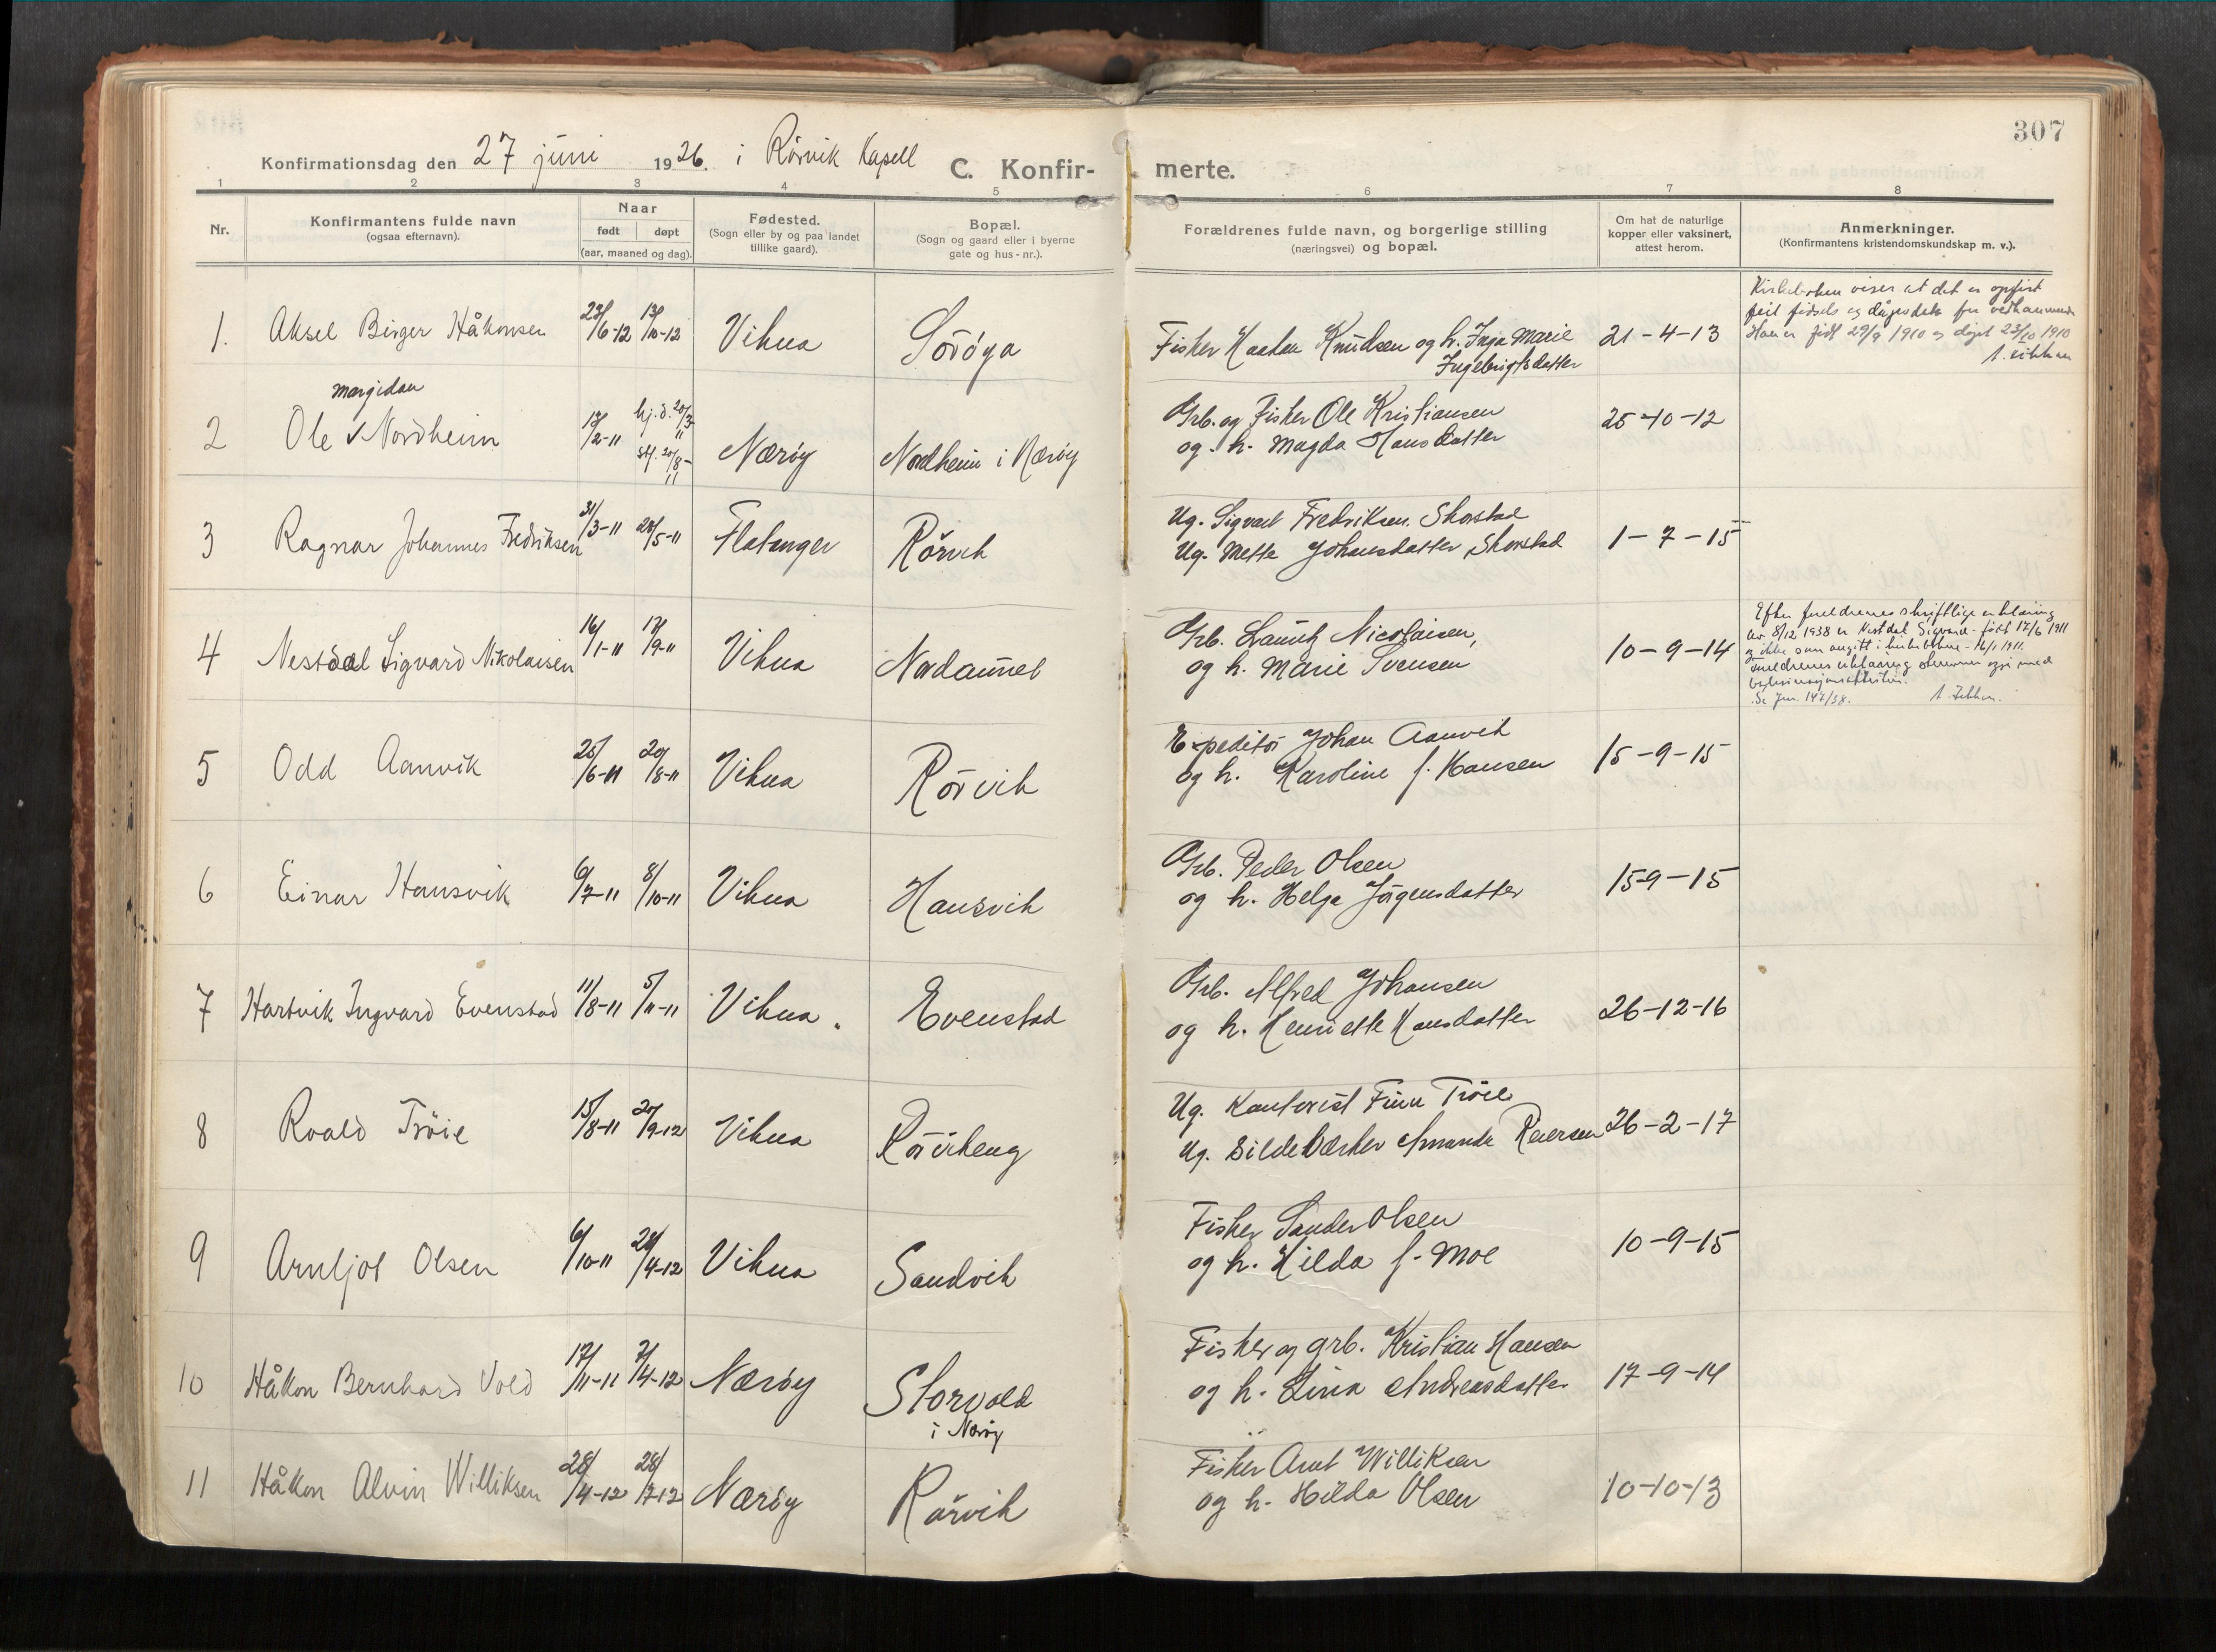 307
Konfirmationsdag den 27 juni 1926. i Rørvik Kapell C. Konfir- merte.
1 2 3 4 5 6 7 8
Nr.
Konfirmantens fulde navn
(ogsaa efternavn).
Naar
født døpt
(aar, maaned og dag).
Fødested.
(Sogn eller by og paa landet
tillike gaard).
Bopæl.
(Sogn og gaard eller i byerne
gate og hus-nr.).
Forældrenes fulde navn, og borgerlige stilling
(næringsvei) og bopæl.
Om hat de naturlige
kopper eller vaksinert,
attest herom.
Anmerkninger.
(Konfirmantens kristendomskundskap m. v.).
1. Aksel Birger Håkonsen 23/6-12 13/10-12 Vikna Söröya
Fisker Haakon Knudsen og h. Inga Marie
Ingebrigtsdatter
21-4-13
Kirkeboken viser at det er opført
feil fødsels og dåpsdato for vedkommende
Han er født 29/9 1910 og døpt 23/10 1910
Margidan
2 Ole Nordheim 17/2-11 hj.d. 20/3-11 st. 20/8-11 Næröy Nordheim i Næröy
Grb. og Fisker Ole Kristiansen
og h. Magda Hansdatter
25-10-12
3 Ragnar Johannes Fredriksen 31/3-11 28/5-11 Flatanger Rörvik
Ug. Sigvart Fredriksen Skorstad
Ug. Mette Johansdatter Skorstad
1-7-15
4 Nestdal Sigvard Nikolaisen 16/1-11 17/9-11 Vikna Nordaunet
Grb. Lauritz Nicolaisen,
og h. Marie Svensen
10-9-14
Efter foreldrenes skriftlige erklæring
av 8/12 1938 er Nestdal Sigvard født 17/6 1911
og ikke som angitt i kirkebökene - 16/1 1911.
Foreldrenes erklæring stemmer også med
vaksinasjonsattesten.
Se Jnr. 147/38.
5 Odd Aanvik 25/6-11 20/8-11 Vikna Rörvik
Expeditör Johan Aanvik
og h. Karoline f. Hansen
15-9-15
6 Einar Hansvik 6/7-11 8/10-11 Vikna Hansvik
Grb. Peder Olsen
og h. Helga Jörgensdatter
15-9-15
7 Hartvik Ingvard Evenstad 11/8-11 5/11-11 Vikna. Evenstad
Grb. Alfred Johansen
og h. Henriette Hansdatter
26-12-16
8 Roald Tröie 15/8-11 Vikna Rörvikeng
Ug. Kontorist Finn Tröie
Ug. Amanda Reiersen
26-2-17
9 Arnljot Olsen 6/10-11 28/4-12 Vikna Sandvik
Fisker Sander Olsen
og h. Hilda f. Moe
10-9-15
10 Håkon Bernhard Vold 17/11-11 7/4-12 Næröy Storvold
i Nærøy
Fisker og grb. Kristian Hansen
og h. Lina Andreasdatter
17-9-14
11 Håkon Alvin Williksen 28/4-12 28/7-12 Næröy Rörvik
Fisker Arnt Williksen
og h. Hilda Olsen
10-10-13